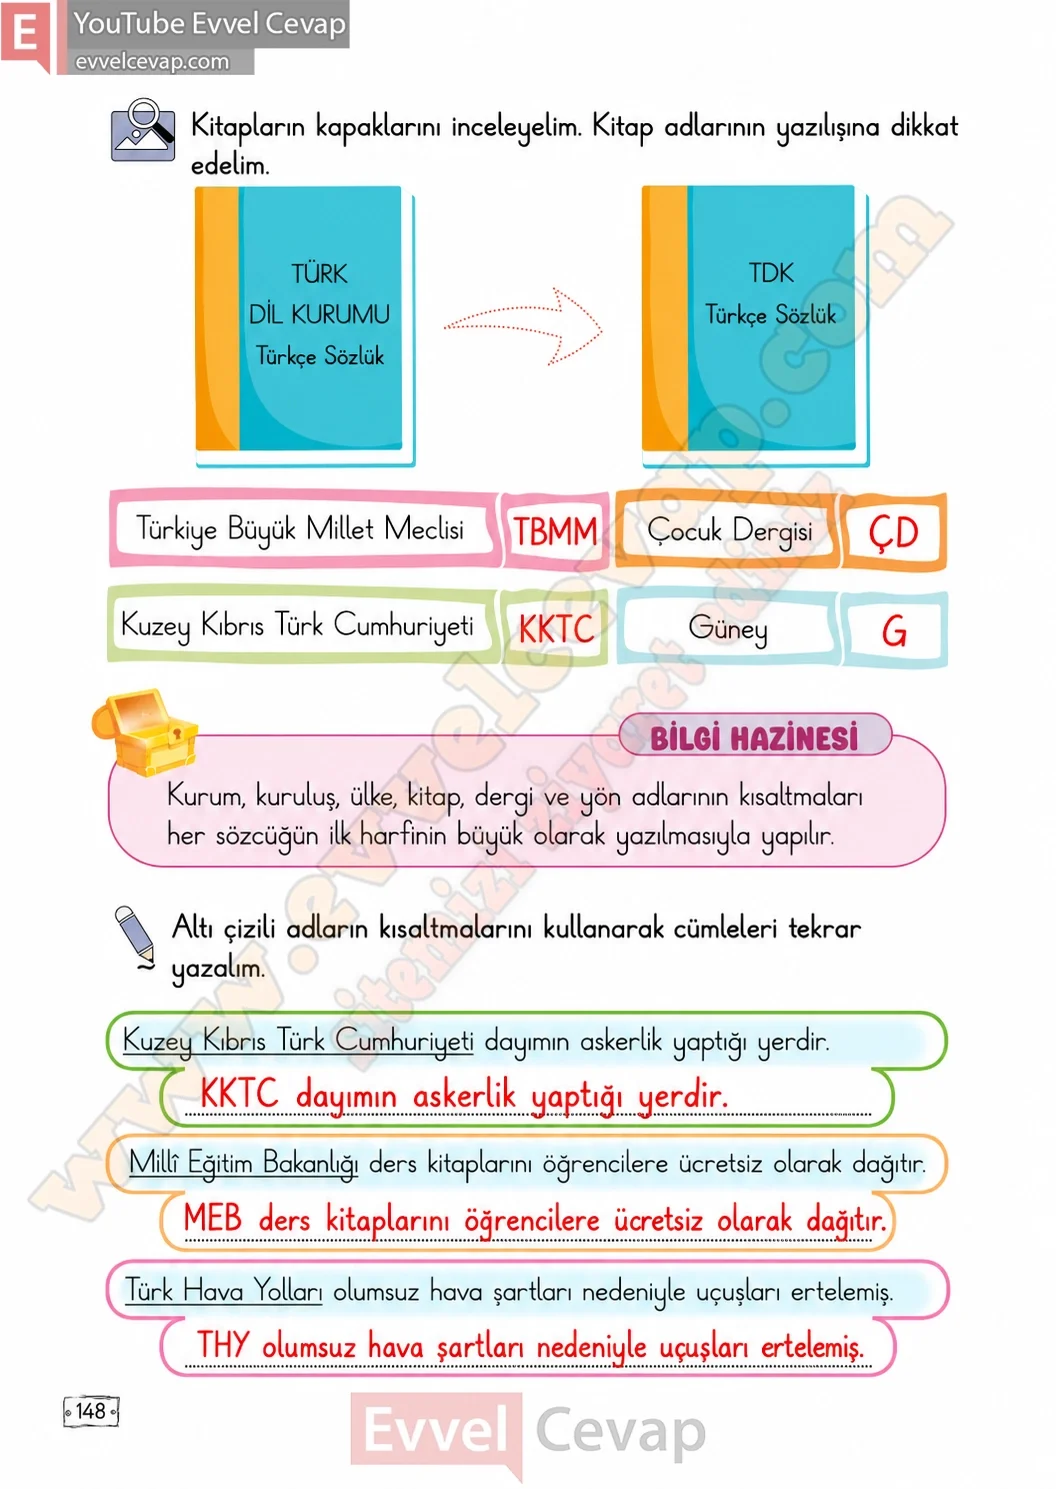 E YouTube Evvel Cevap
evvelcevap.com
Kitapların kapaklarını inceleyelim. Kitap adlarının yazılışına dikkat
edelim.
TÜRK
DİL KURUMU
Türkçe Sözlük
TDK
Türkçe Sözlük
Türkiye Büyük Millet Meclisi TBMM Çocuk Dergisi ÇD
Kuzey Kıbrıs Türk Cumhuriyeti KKTC Güney G
BİLGİ HAZİNESİ
Kurum, kuruluş, ülke, kitap, dergi ve yön adlarının kısaltmaları
her sözcüğün ilk harfinin büyük olarak yazılmasıyla yapılır.
Altı çizili adların kısaltmalarını kullanarak cümleleri tekrar
yazalım.
Kuzey Kıbrıs Türk Cumhuriyeti dayımın askerlik yaptığı yerdir.
KKTC dayımın askerlik yaptığı yerdir.
Millî Eğitim Bakanlığı ders kitaplarını öğrencilere ücretsiz olarak dağıtır.
MEB ders kitaplarını öğrencilere ücretsiz olarak dağıtır.
Türk Hava Yolları olumsuz hava şartları nedeniyle uçuşları ertelemiş.
THY olumsuz hava şartları nedeniyle uçuşları ertelemiş.
148
Evvel Cevap
www.evvelcevap.com
sitemizi ziyaret ediniz